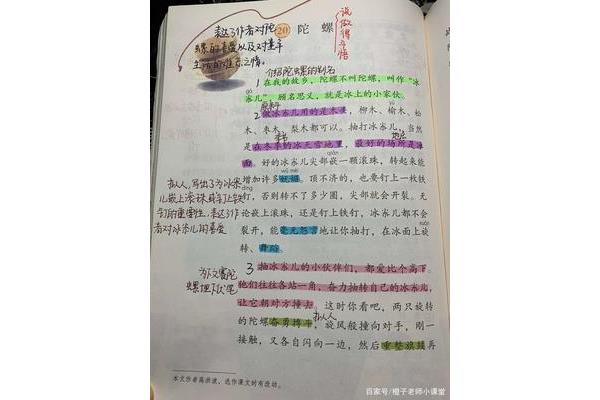 说做得手悟
表达了作者对陀
螺的喜爱以及对童年
生活的难忘之情。
20 陀螺
介绍陀螺的别名
1 在我的故乡，陀螺不叫陀螺，叫作“冰
gá
尜儿”，顾名思义，就是冰上的小家伙。
原材料
2 做冰尜儿用的是木头，柳木、榆木、松
木、枣木、梨木都可以。抽打冰尜儿，当然
季节
地点
是在冬季的冰天雪地里，最好的场所是冰
面。好的冰尜儿尖部嵌一颗滚珠，转起来能
qiàn
wǔ mèi
增加许多妩媚。顶不济的，也要钉上一枚铁
dīng
钉，否则转不了多少圈，尖部就会开裂。无
论嵌上滚珠，还是钉上铁钉，冰尜儿都不会
裂开，能毫无怨言地让你抽打，在冰面上旋
转、舞蹈。
拟人，写出了为冰尜
儿嵌上滚珠或钉上铁
钉的重要性，表达了作
者对冰尜儿的喜爱
3 抽冰尜儿的小伙伴们，都爱比个高下。
他们往往各站一角，奋力抽转自己的冰尜儿，
让它朝对方撞去。这时你看吧，两只旋转
拟人
的陀螺奋勇搏斗，旋风般撞向对手，刚一
接触，又各自闪向一边，然后重整旗鼓再
为下文赛陀
螺埋下伏笔
本文作者高洪波，选作课文时有改动。
百家号/橙子老师小课堂